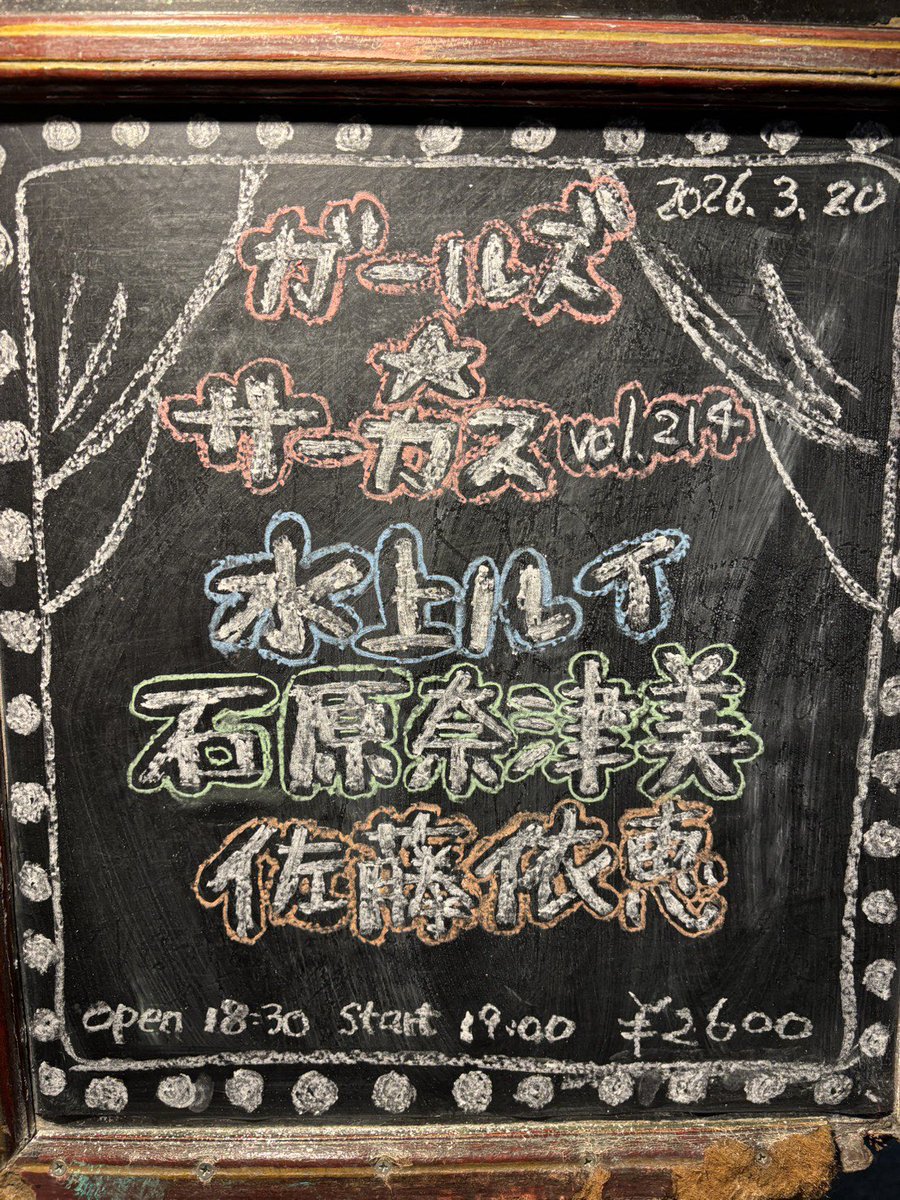 2026.3.20
ガールズ
☆
サーカス vol.214
水上ルイ
石原奈津美
佐藤依恵
open 18:30 Start 19:00 ¥2600